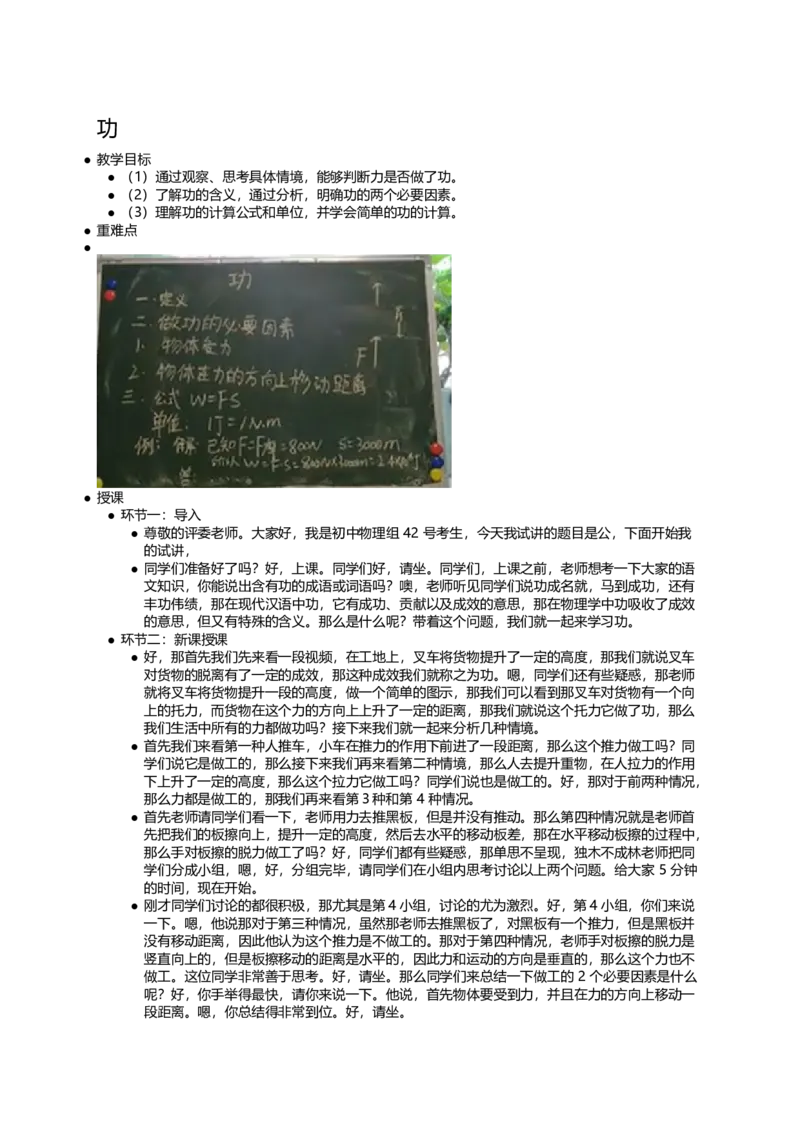 功
● 教学目标
● （1）通过观察、思考具体情境，能够判断力是否做了功。
● （2）了解功的含义，通过分析，明确功的两个必要因素。
● （3）理解功的计算公式和单位，并学会简单的功的计算。
● 重难点
●
功
一.定义
二.做功的必要因素
1. 物体受力
2. 物体在力的方向上移动距离
三.公式 W=FS
单位：1J=1N.m
例：解：已知F=F摩=800N S=3000m
W=F·S=800N×3000m=
答
F
● 授课
● 环节一：导入
● 尊敬的评委老师。大家好，我是初中物理组 42 号考生，今天我试讲的题目是公，下面开始我
的试讲，
● 同学们准备好了吗？好，上课。同学们好，请坐。同学们，上课之前，老师想考一下大家的语
文知识，你能说出含有功的成语或词语吗？噢，老师听见同学们说功成名就，马到成功，还有
丰功伟绩，那在现代汉语中功，它有成功、贡献以及成效的意思，那在物理学中功吸收了成效
的意思，但又有特殊的含义。那么是什么呢？带着这个问题，我们就一起来学习功。
● 环节二：新课授课
● 好，那首先我们先来看一段视频，在工地上，叉车将货物提升了一定的高度，那我们就说叉车
对货物的脱离有了一定的成效，那这种成效我们就称之为功。嗯，同学们还有些疑惑，那老师
就将叉车将货物提升一段的高度，做一个简单的图示，那我们可以看到那叉车对货物有一个向
上的托力，而货物在这个力的方向上上升了一定的距离，那我们就说这个托力它做了功，那么
我们生活中所有的力都做功吗？接下来我们就一起来分析几种情境。
● 首先我们来看第一种人推车，小车在推力的作用下前进了一段距离，那么这个推力做工吗？同
学们说它是做工的，那么接下来我们再来看第二种情境，那么人去提升重物，在人拉力的作用
下上升了一定的高度，那么这个拉力它做工吗？同学们说也是做工的。好，那对于前两种情况，
那么力都是做工的，那我们再来看第 3 种和第 4 种情况。
● 首先老师请同学们看一下，老师用力去推黑板，但是并没有推动。那么第四种情况就是老师首
先把我们的板擦向上，提升一定的高度，然后去水平的移动板差，那在水平移动板擦的过程中，
那么手对板擦的脱力做工了吗？好，同学们都有些疑惑，那单思不呈现，独木不成林老师把同
学们分成小组，嗯，好，分组完毕，请同学们在小组内思考讨论以上两个问题。给大家 5 分钟
的时间，现在开始。
● 刚才同学们讨论的都很积极，那尤其是第 4 小组，讨论的尤为激烈。好，第 4 小组，你们来说
一下。嗯，他说那对于第三种情况，虽然那老师去推黑板了，对黑板有一个推力，但是黑板并
没有移动距离，因此他认为这个推力是不做工的。那对于第四种情况，老师手对板擦的脱力是
竖直向上的，但是板擦移动的距离是水平的，因此力和运动的方向是垂直的，那么这个力也不
做工。这位同学非常善于思考。好，请坐。那么同学们来总结一下做工的 2 个必要因素是什么
呢？好，你手举得最快，请你来说一下。他说，首先物体要受到力，并且在力的方向上移动一
段距离。嗯，你总结得非常到位。好，请坐。